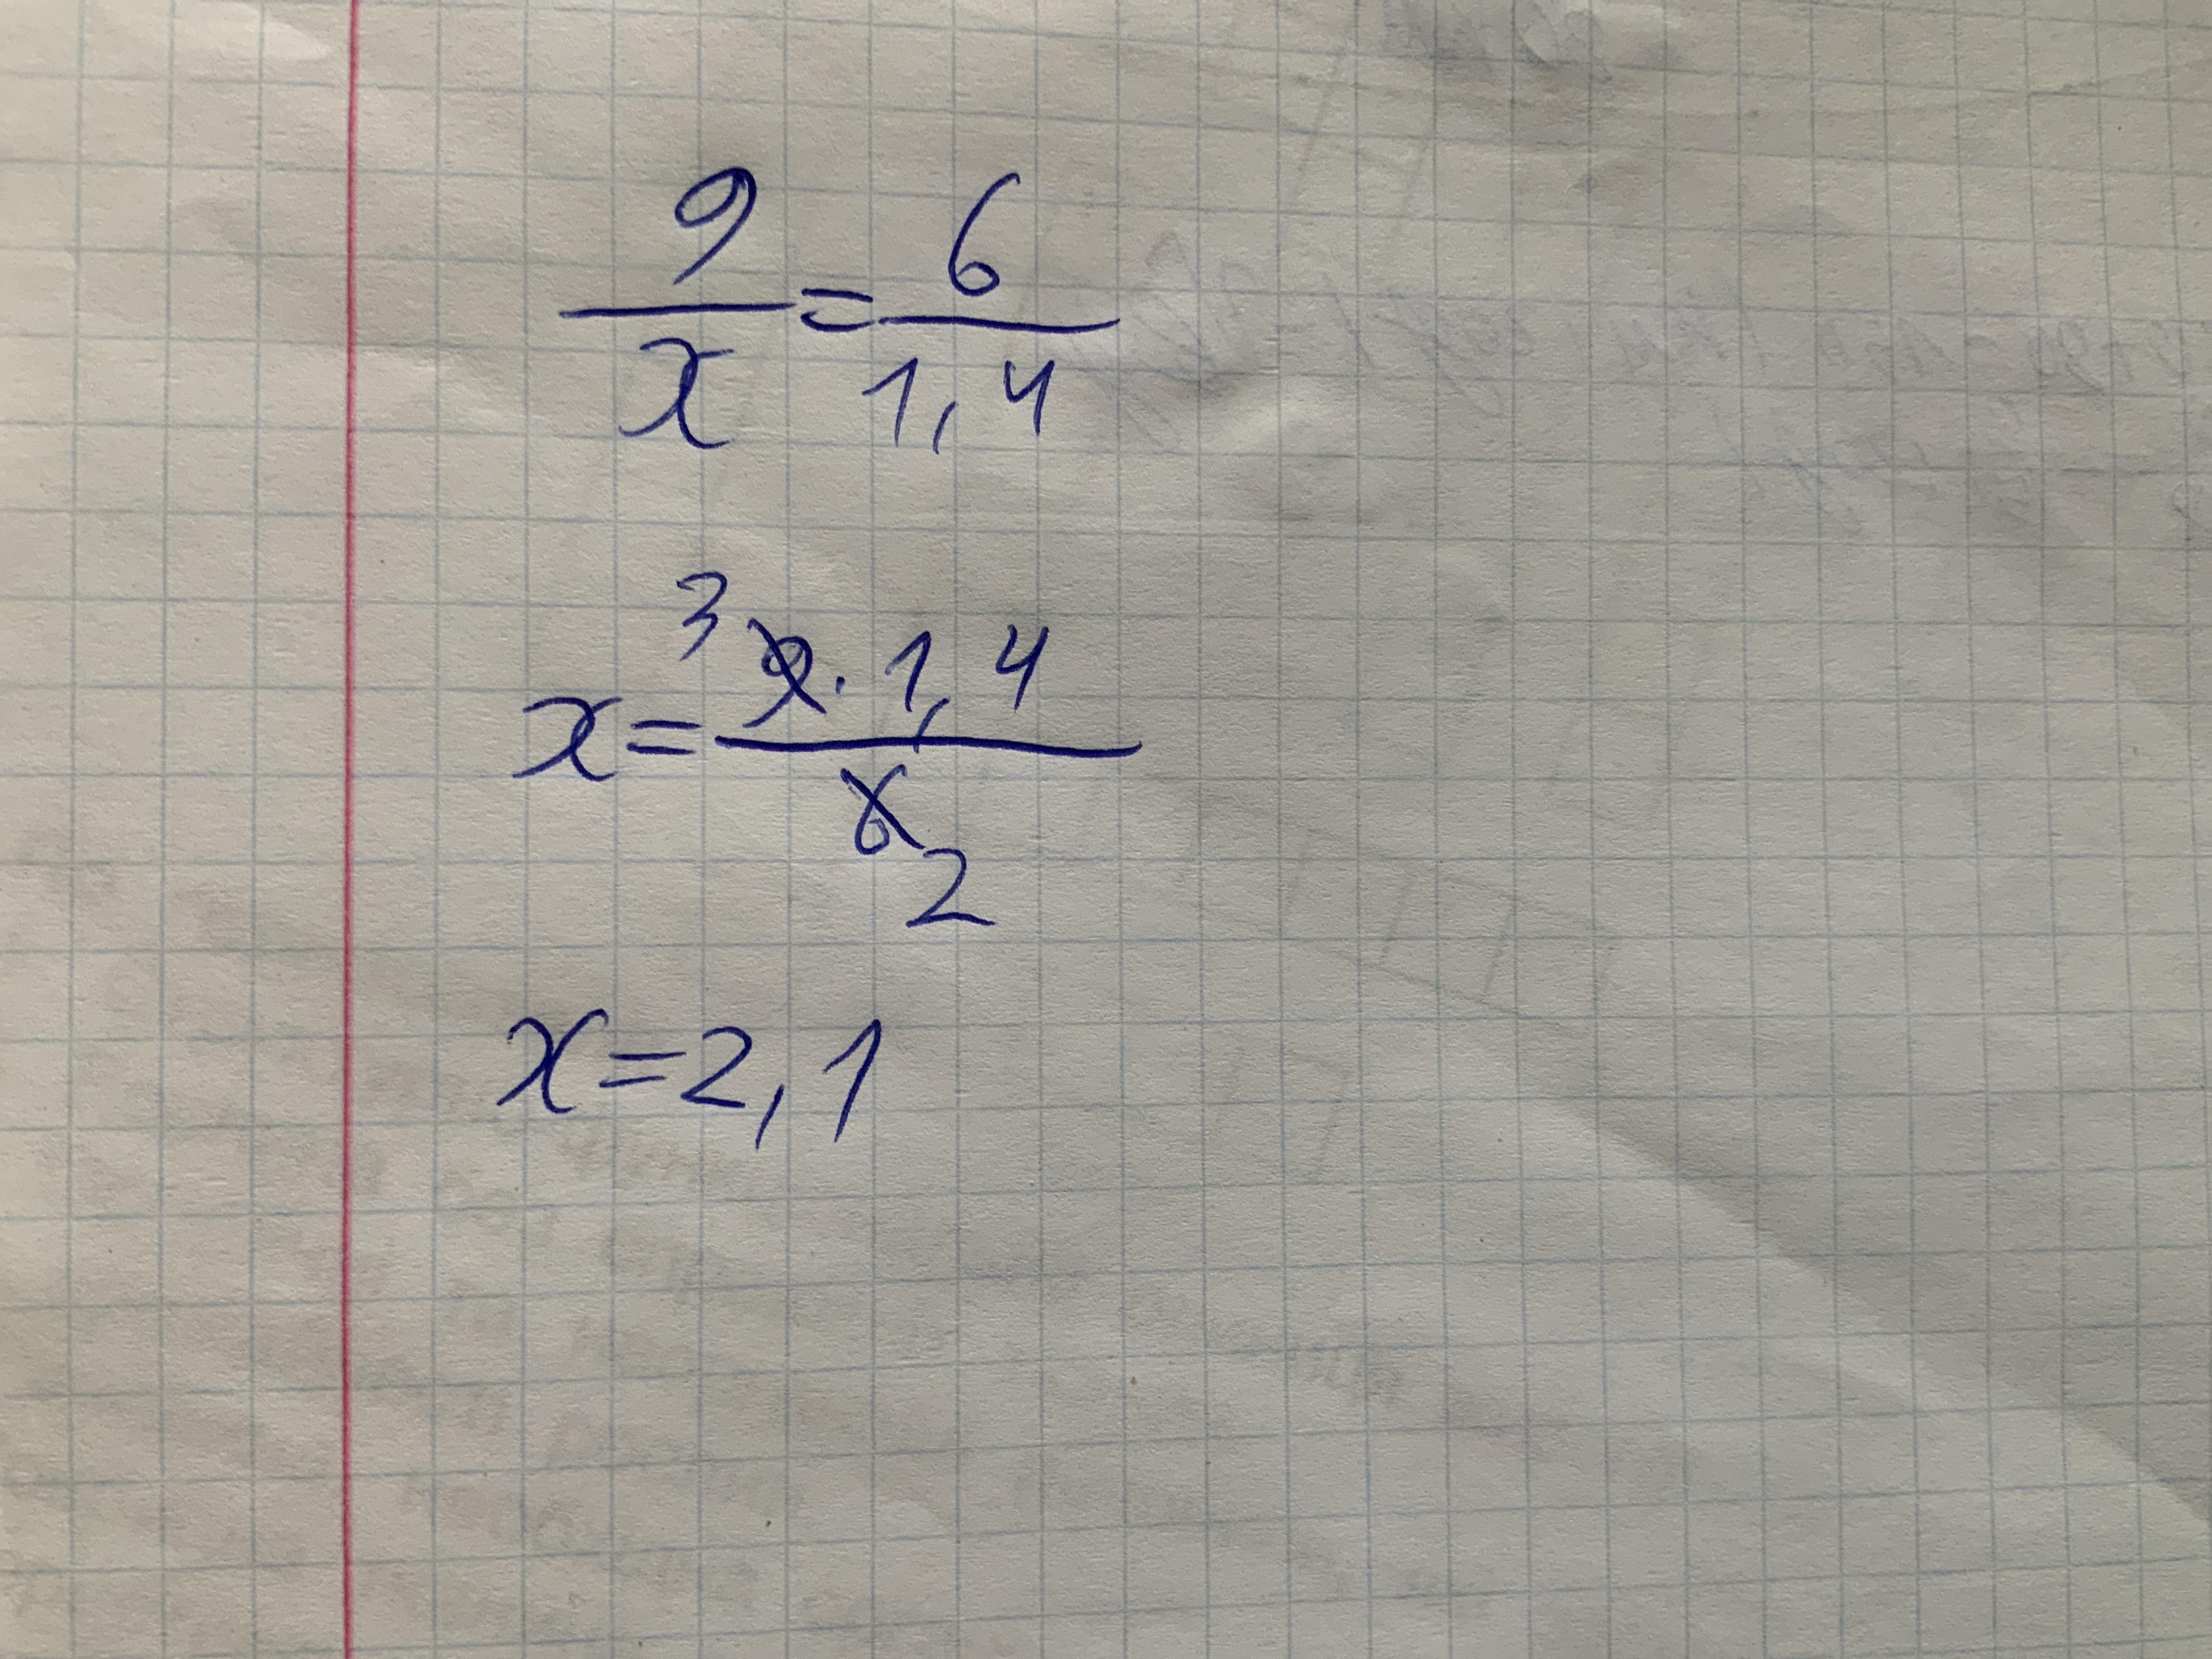 9/x = 6/1,4
x = 3 9 · 1,4 / 6 2
x = 2,1